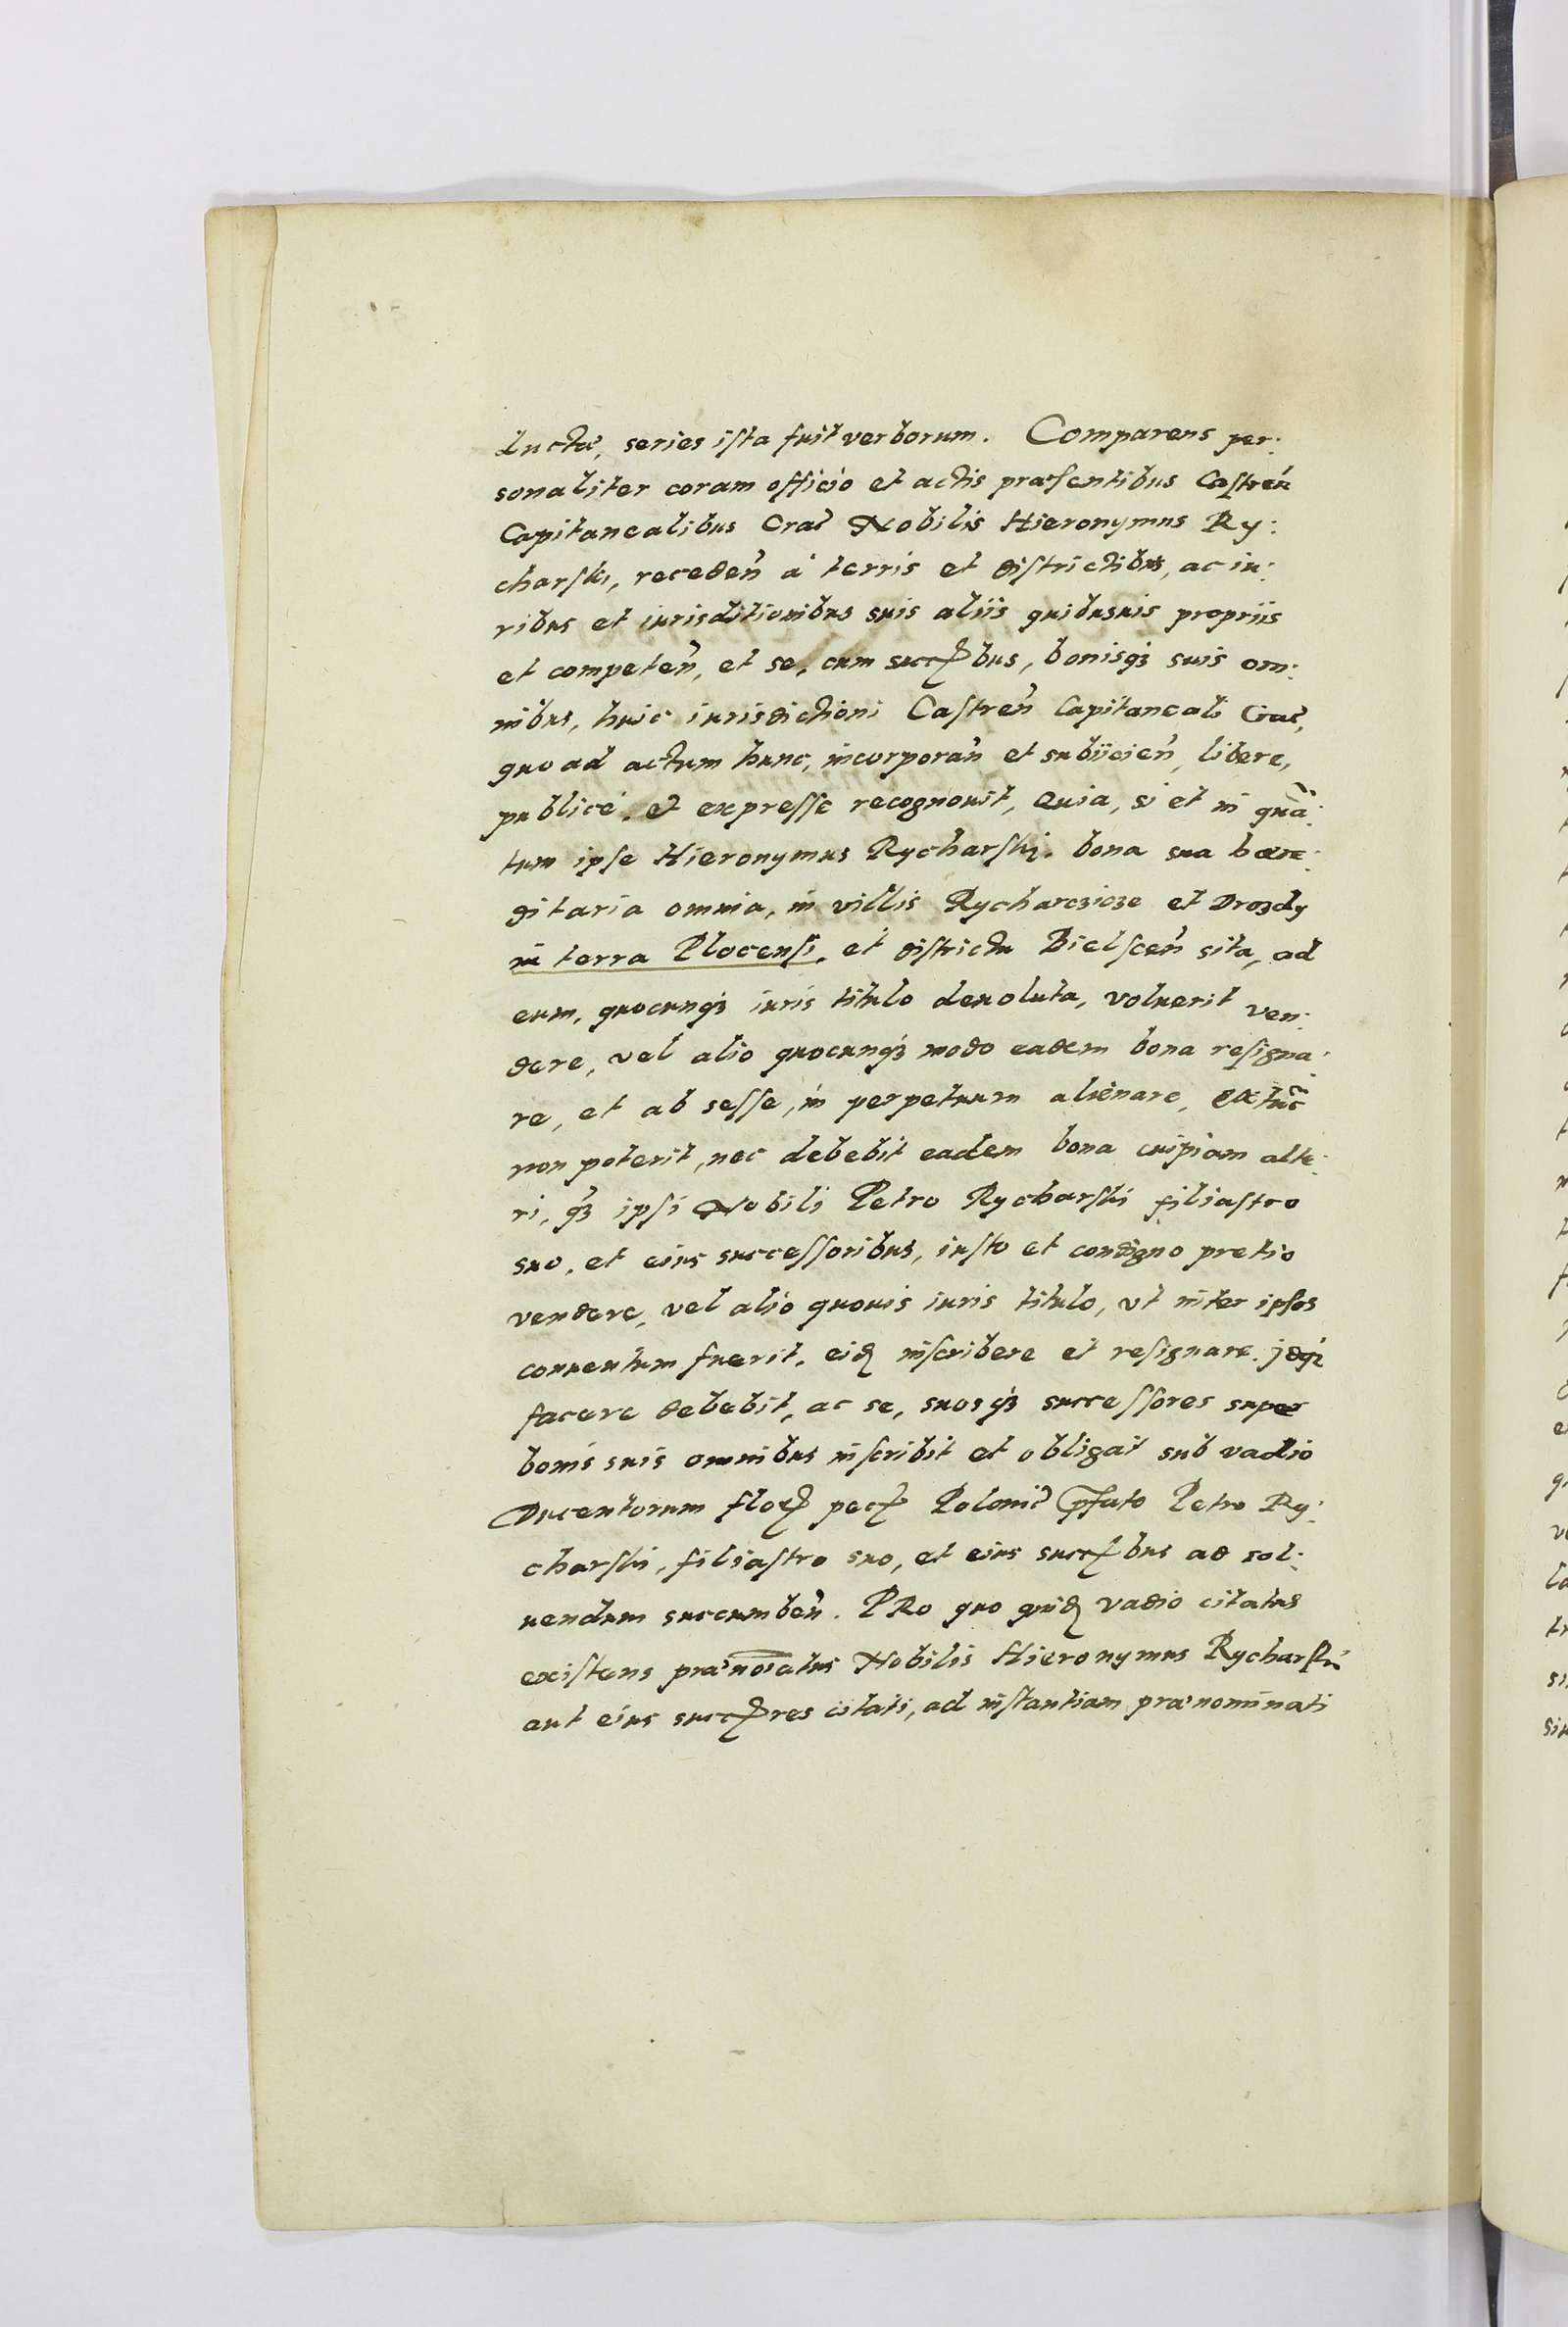 ductae, series ista fuit verborum. Comparens per:
sonaliter coram officio et actis praesentibus Castren
Capitanealibus Crac Nobilis Hieronymus Ry:
charski, receden à terris et districtibus, ac iu:
ribus et iurisditionibus suis aliis quibusuis propriis
et competen, et se, cum succ̃bus, bonisq3 suis om:
nibus, huic iurisdictioni Castren Capitaneali Crac,
quo ad actum hunc, incorporan et subiicien, libere,
publicé, et expresse recognouit, Quia, si et in quã:
tum ipse Hieronymus Rycharski, bona sua haere:
ditaria omnia, in villis Rycharczicze et Drozdy
in terra Plocensi, et districtu Bielscen sita, ad
eum, quocunq3 iuris titulo deuoluta, voluerit ven:
dere, vel alio quocunq3 modo eadem bona resigna:
re, et ab sesse, in perpetuum alienare, extũc
non poterit, nec debebit eadem bona cuipiam alte:
ri, q3 ipsi Nobili Petro Rycharski filiastro
suo, et eius successoribus, iusto et condigno pretio
vendere, vel alio quouis iuris titulo, vt inter ipsos
conuentum fuerit, eid inscribere et resignare. jdq3
facere debebit, ac se, suosq3 successores super
bonis suis omnibus inscribit et obligat sub vadio
Ducentorum flo pec Polonic pfato Petro Ry:
charski, filiastro suo, et eius succ̃bus ad sol:
uendum succumben. PRo quo quid vadio citatus
existens praenoĩatus Nobilis Hieronymus Rycharski
aut eius succ̃res citati, ad instantiam praenominati